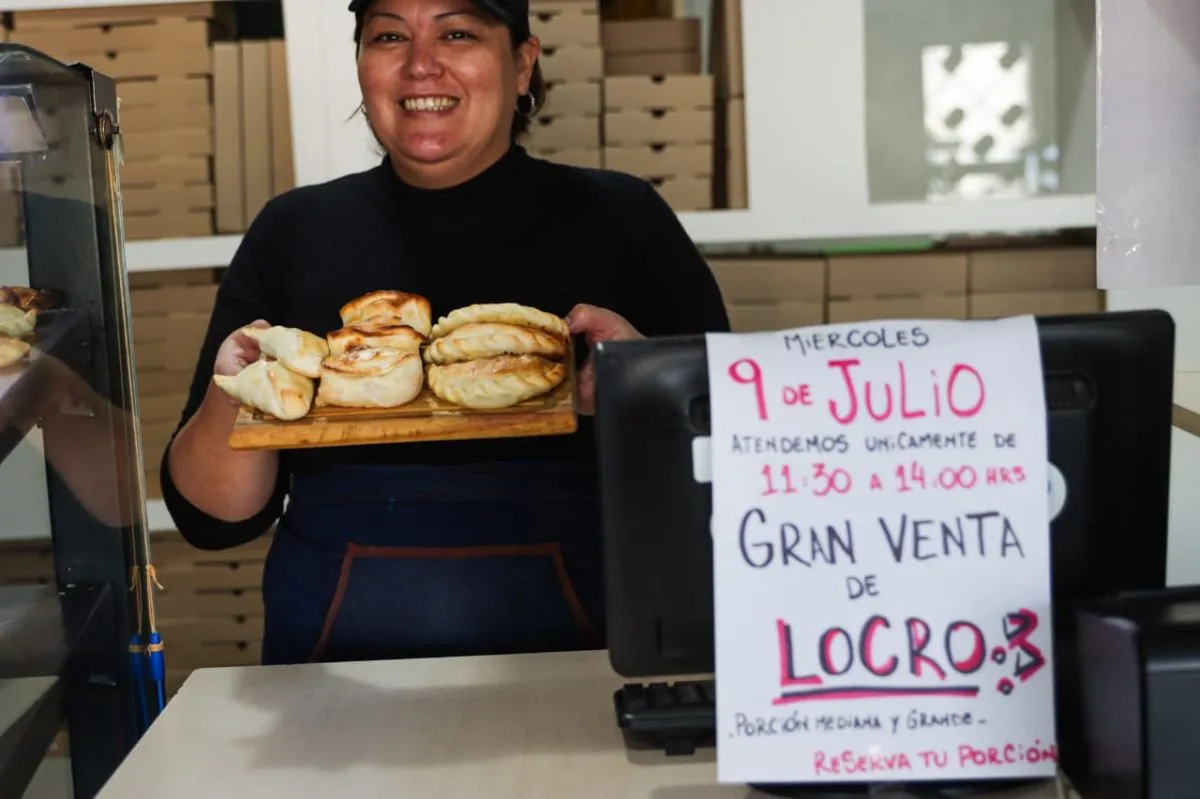 MIERCOLES
9 DE JULIO
ATENDEMOS UNICAMENTE DE
11:30 A 14:00 HRS
GRAN VENTA
DE
LOCRO
.PORCIÓN MEDIANA Y GRANDE-
RESERVA TU PORCIÓN